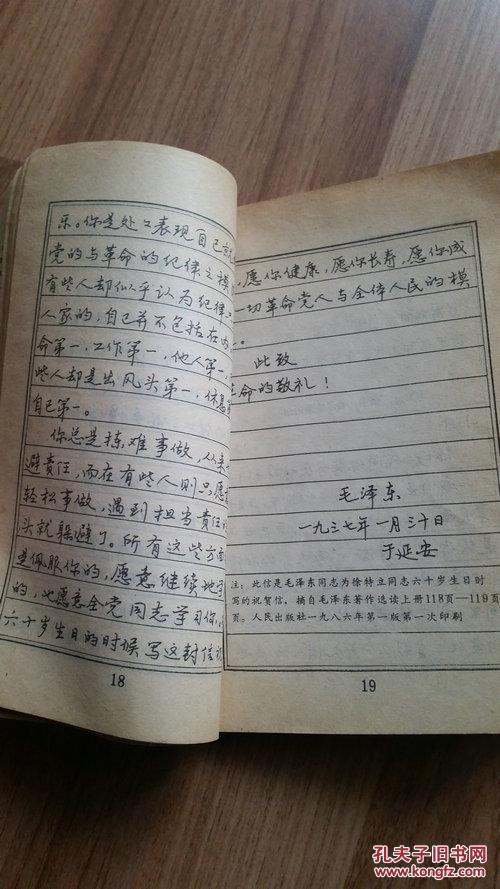 乐。你是处々表现自己
党的与革命的纪律之模
有些人却似乎认为纪律
人家的,自己并不包括在内
命第一,工作第一,他人第一,
些人却是出风头第一,休息
自己第一。
你总是拣难事做,从来
避责任,而在有些人则只愿
轻松事做,遇到担当责任的
头就躲避了。所有这些方面
是佩服你的,愿意继续地学
的,也愿意全党同志学习你,
六十岁生日的时候写这封信
18
,愿你健康,愿你长寿,愿你成
一切革命党人与全体人民的模
。
此致
革命的敬礼!
毛泽东
一九三七年一月三十日
于延安
注:此信是毛泽东同志为徐特立同志六十岁生日时
写的祝贺信,摘自毛泽东著作选读上册118页—119页
页。人民出版社一九八六年第一版第一次印刷
19
孔夫子旧书网
www.kongfz.com